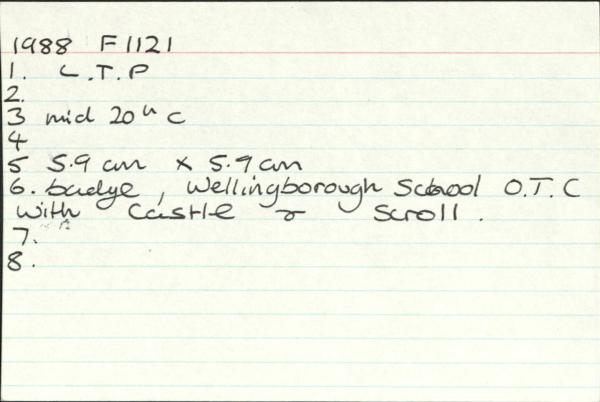 1988 F1121
1. L.T.P
2.
3 mid 20th C
4
5 5.9 cm x 5.9 cm
6. badge, Wellingborough School O.T.C
with Castle & Scroll.
7.
8.